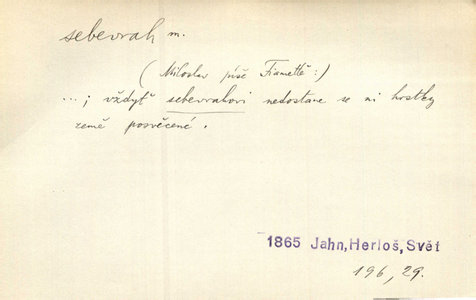 sebevrah m.
(Miloslav píše Fiamettě:)
...; vždyť sebevrahovi nedostane se ni hrstky
země posvěcené.
1865 Jahn, Herloš, Svět
196, 29.